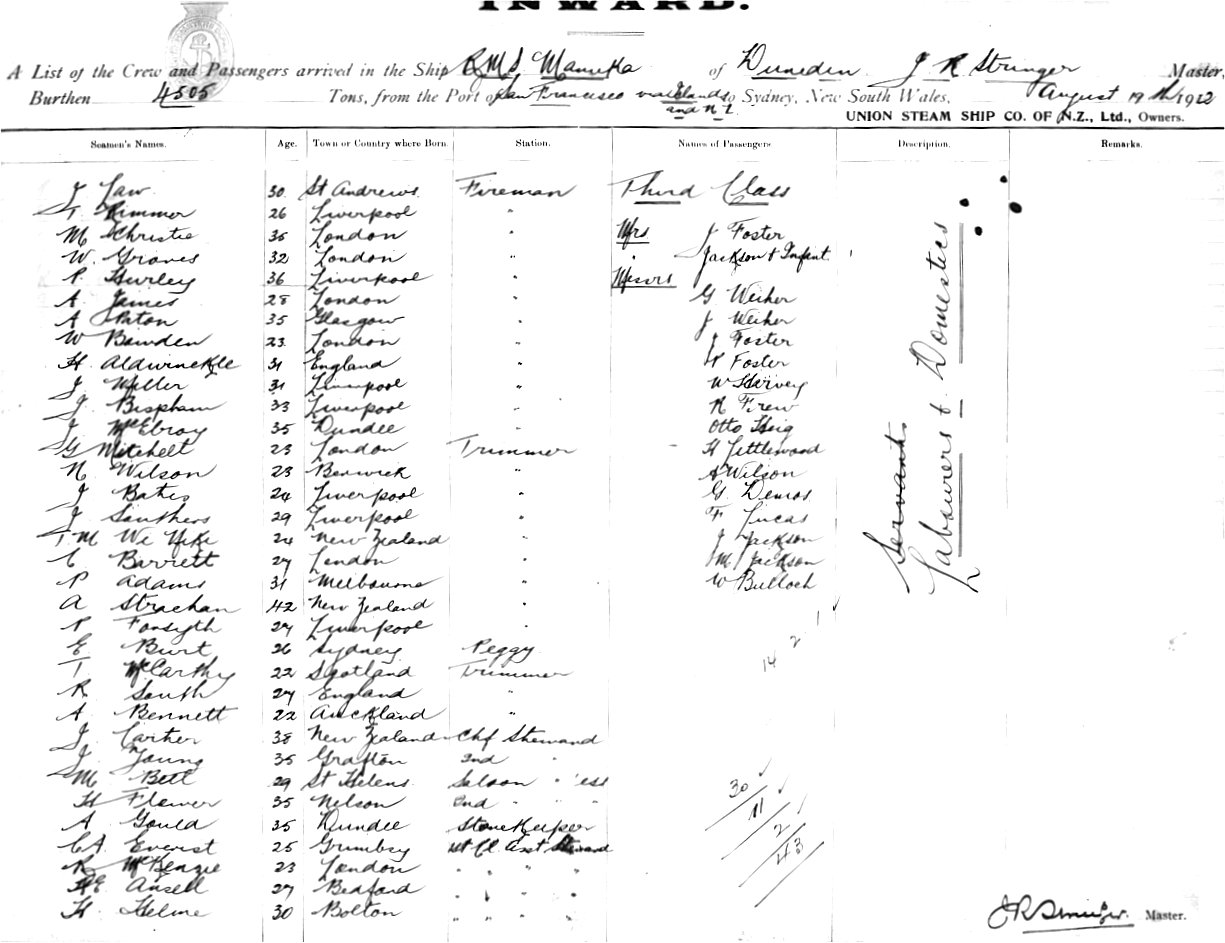 INWARD.
A List of the Crew and Passengers arrived in the Ship RMS Manuka of Dunedin J R Stringer Master,
Burthen 4505 Tons, from the Port of San Francisco via Islands and N Z to Sydney, New South Wales, August 19th 1912
UNION STEAM SHIP CO. OF N.Z., Ltd., Owners.
Seamen's Names. Age. Town or Country where Born. Station. Names of Passengers Description. Remarks.
J Law 30 St Andrews Fireman Third Class
T Rimmer 26 Liverpool "
M Christie 35 London " Mrs J Foster
W. Groves 32 London " " Jackson & Infant
P. Hurley 36 Liverpool " Messrs
A. James 28 London " G Weiher
A Paton 35 Glasgow " J Weiher
W Bowden 23 London " J Foster
H. Aldwinckle 31 England " P Foster
J Miller 31 Liverpool " W Harvey
J. Bispham 33 Liverpool " R Firew
J McElroy 35 Dundee " Otto Heig
G Mitchell 23 London Trimmer H Littlewood
N Wilson 23 Berwick " A Wilson
J Bates 24 Liverpool " G. Demos
J Southers 29 Liverpool " F Lucas
T M We Yike 24 New Zealand " J Jackson
C Barrett 27 London " M Jackson
P Adams 31 Melbourne " W Bulloch
A Strachan 42 New Zealand "
P Forsyth 27 Liverpool "
E Burt 26 Sydney Peggy
T McCarthy 22 Scotland Trimmer
R South 27 England "
A. Bennett 22 Auckland "
J. Carther 38 New Zealand Chf Steward
J Young 35 Grafton 2nd "
M Bell 29 St Helens Saloon " ess
H Flower 35 Nelson 2nd " " "
A Gould 35 Dundee Storekeeper
C A. Everist 25 Grimbsy 1st Cl Asst Steward
R McKenzie 23 London " " " "
H E Ansell 27 Bedford " " " "
H. Helme 30 Bolton " " " "
Servants
Labourers & Domestics
1
2
14
30
11
2
43
J R Stringer. Master.